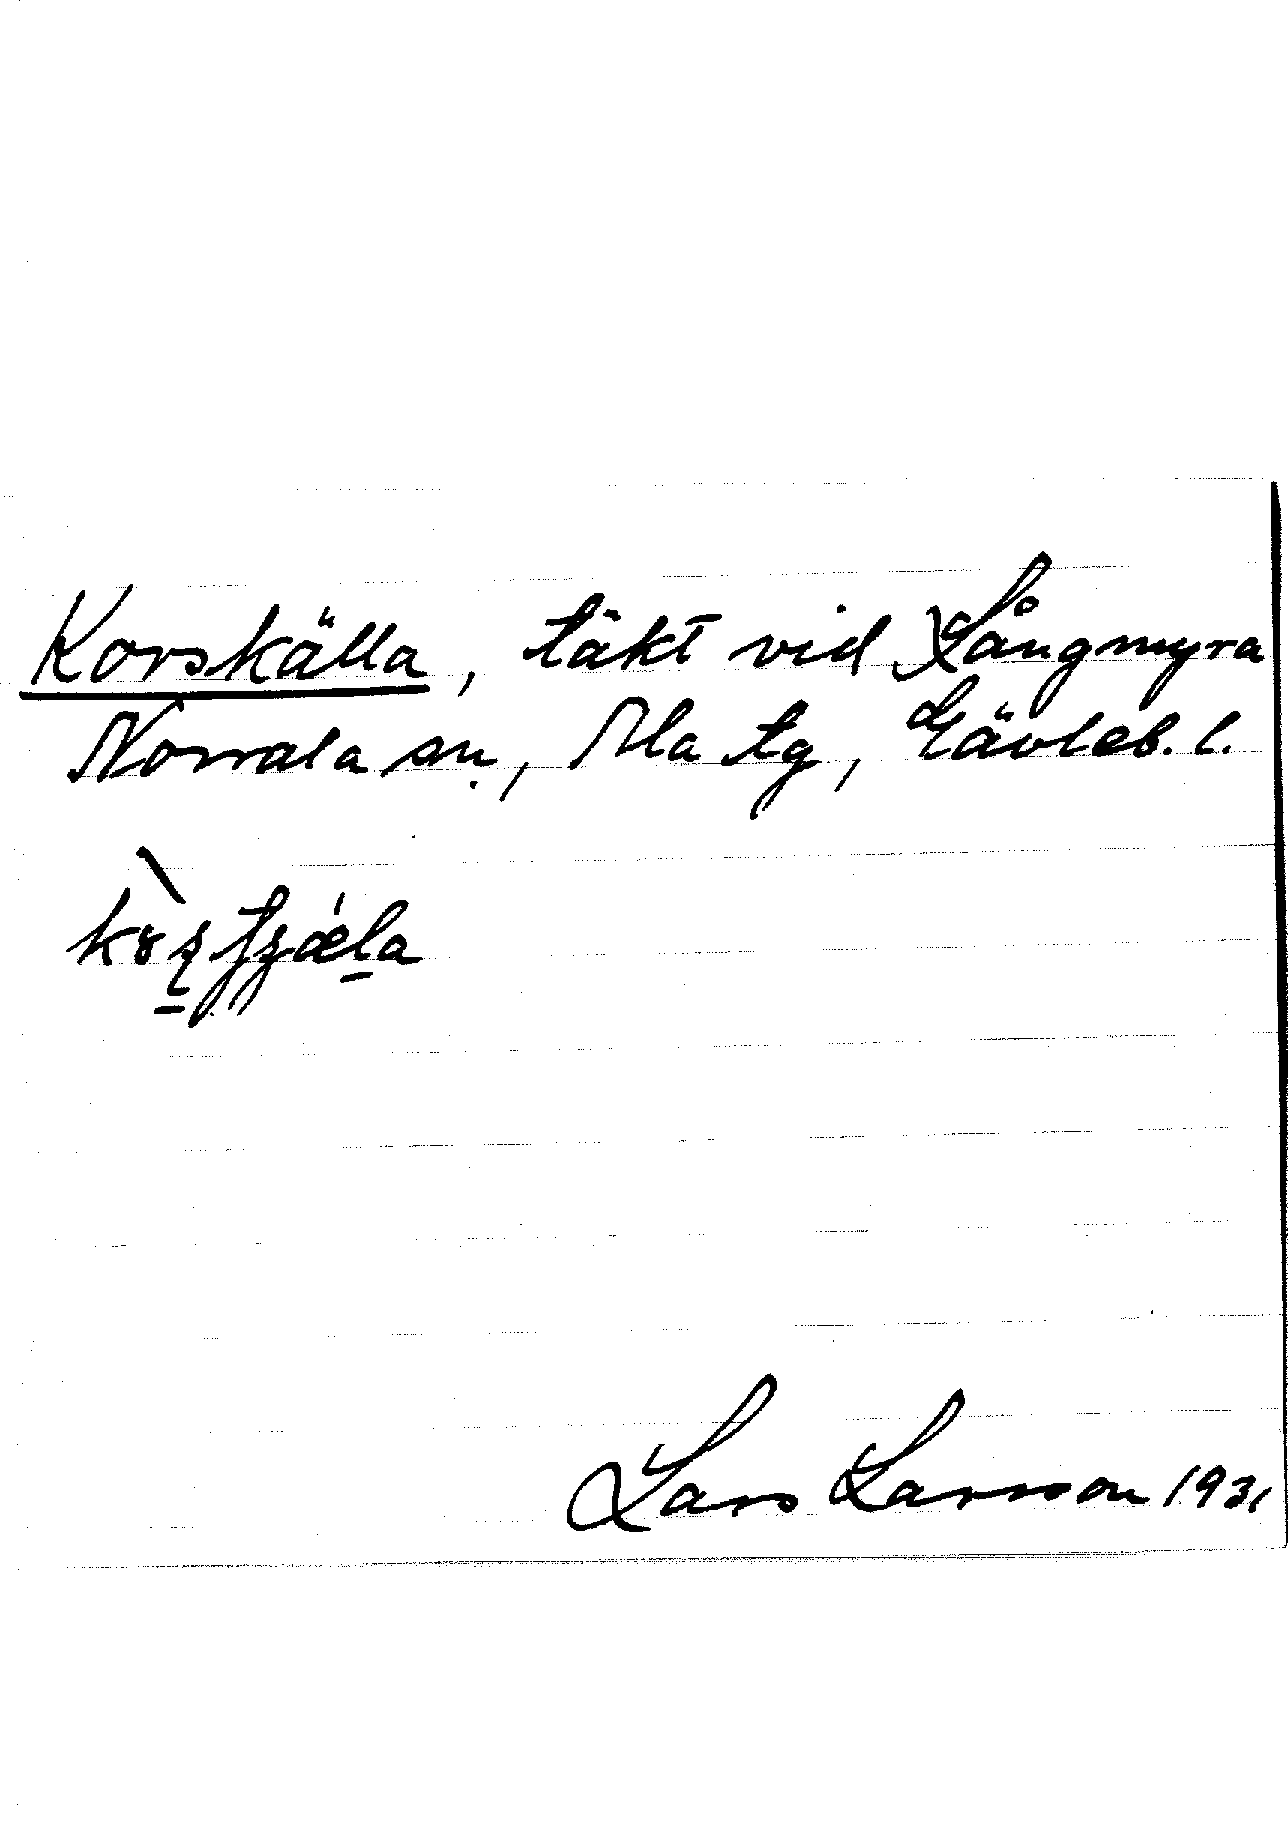 Korskälla, täkt vid Långmyra
Norrala sn, Ala tg, Gävleb. l.
Lars Larsson 1931